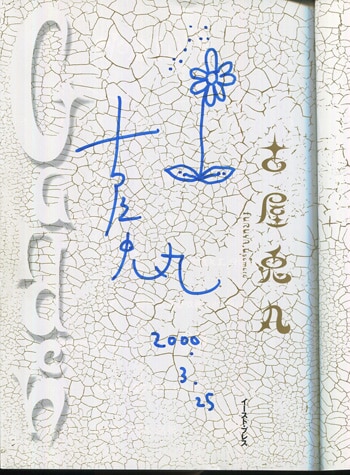 Garden
古屋兎丸
古屋兎丸
2000.
3.
25
イースト・プレス